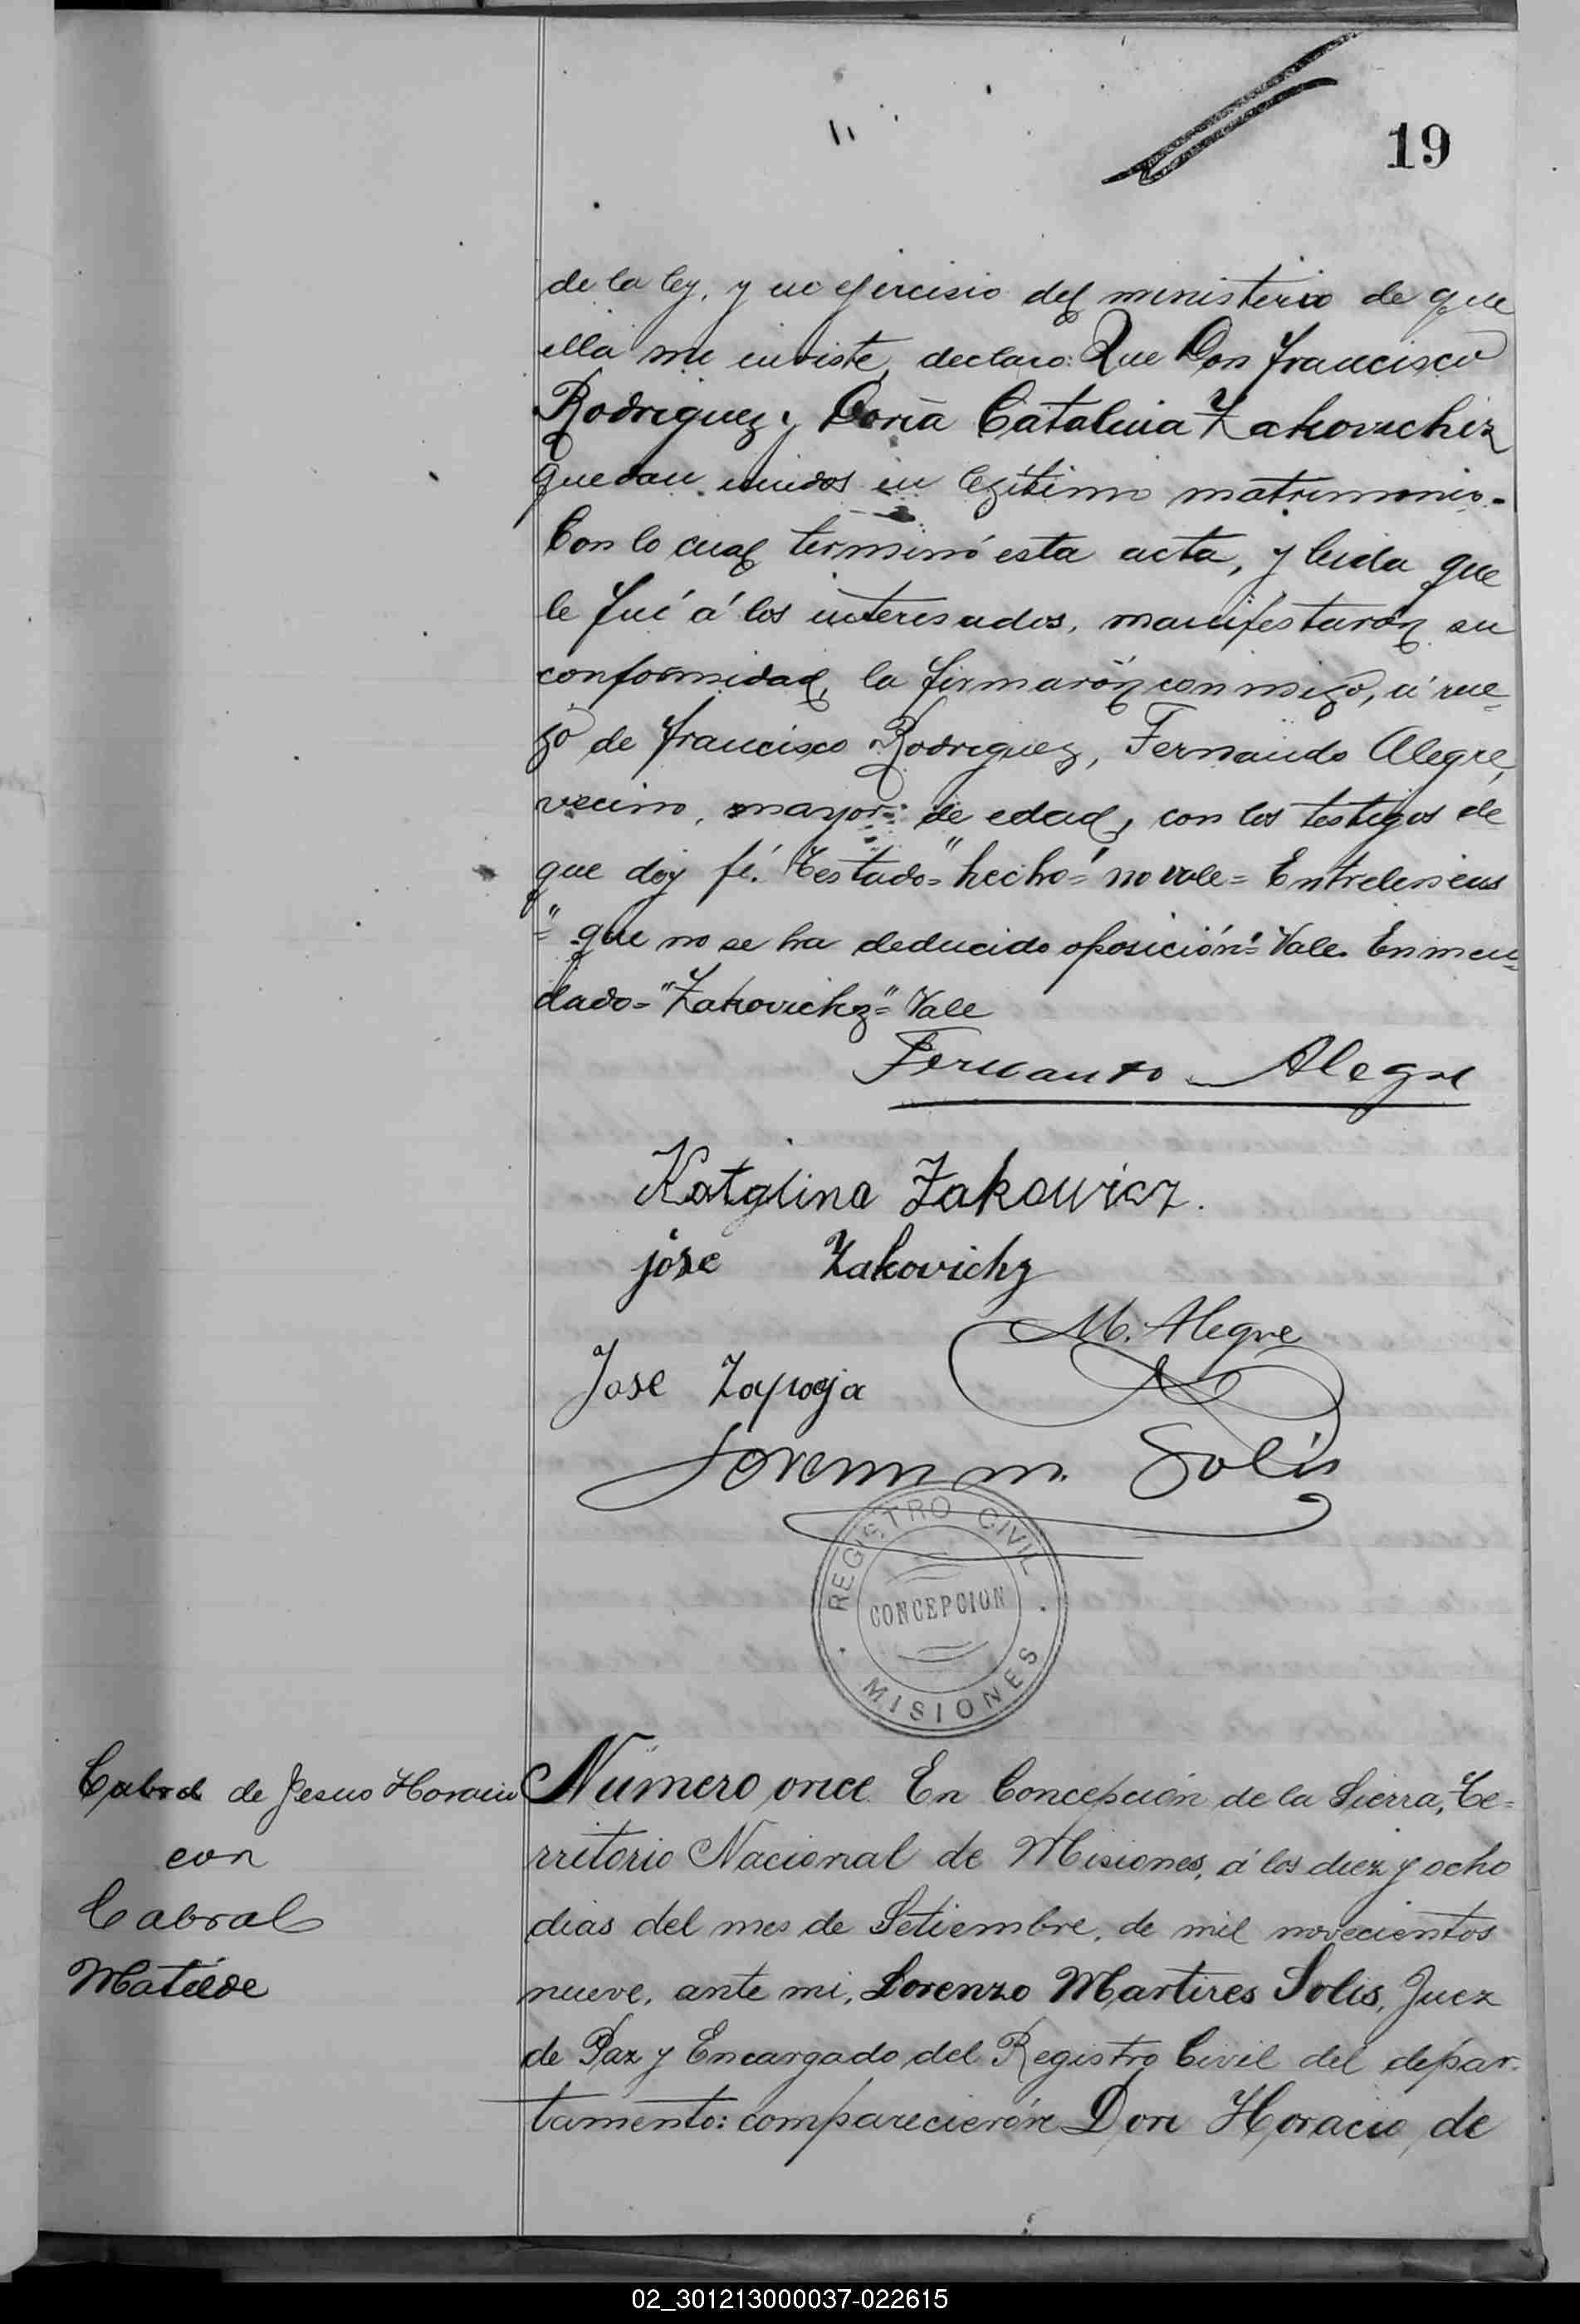 19
de la ley, y en ejercisio del ministerio de que
ella me inviste, declaro: Que Don Francisco
Rodriguez y Doña Catalina Zakovichz
quedan unidos en legítimo matrimonio.-
Con lo cual terminó esta acta, y leida que
le fué á los interesados, manifestarón su
conformidad, la firmarón conmigo, á rue=
go de Francisco Rodriguez, Fernando Alegre,
vecino, mayor de edad, con los testigos de
que doy fé. Testado="hecho"=no vale= Entrelineas
="que no se ha deducido oposición"= Vale. Enmen=
dado="Zakovichz"= Vale
Fernando Alegre
Katalina Zakowicz.
jose Zakovichz
M. Alegre
Jose Zapoja
Lorenzo M. Solis
REGISTRO CIVIL
CONCEPCION
MISIONES
Cabral de Jesus Horacio
con
Cabral
Matilde
Número once. En Concepción de la Sierra, Te=
rritorio Nacional de Misiones, á los diez y ocho
dias del mes de Setiembre, de mil novecientos
nueve, ante mi, Lorenzo Martires Solis, Juez
de Paz y Encargado del Registro Civil del depar-
tamento: comparecierón Don Horacio de
02_301213000037-022615